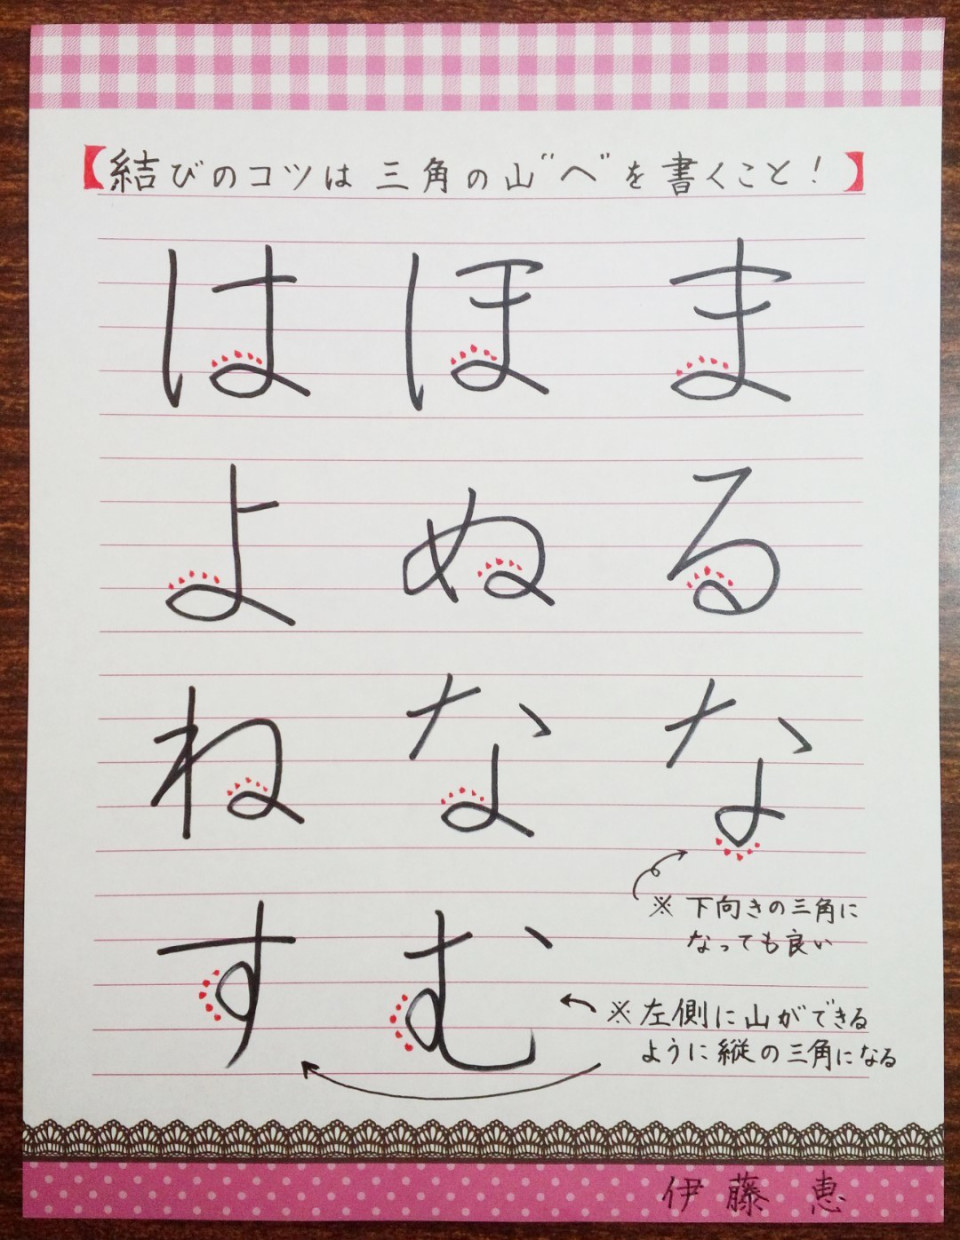 【結びのコツは 三角の山"へ"を書くこと!】
は ほ ま
よ ぬ る
ね な な
※ 下向きの三角に
なっても良い
す む
※ 左側に山ができる
ように縦の三角になる
伊藤 恵